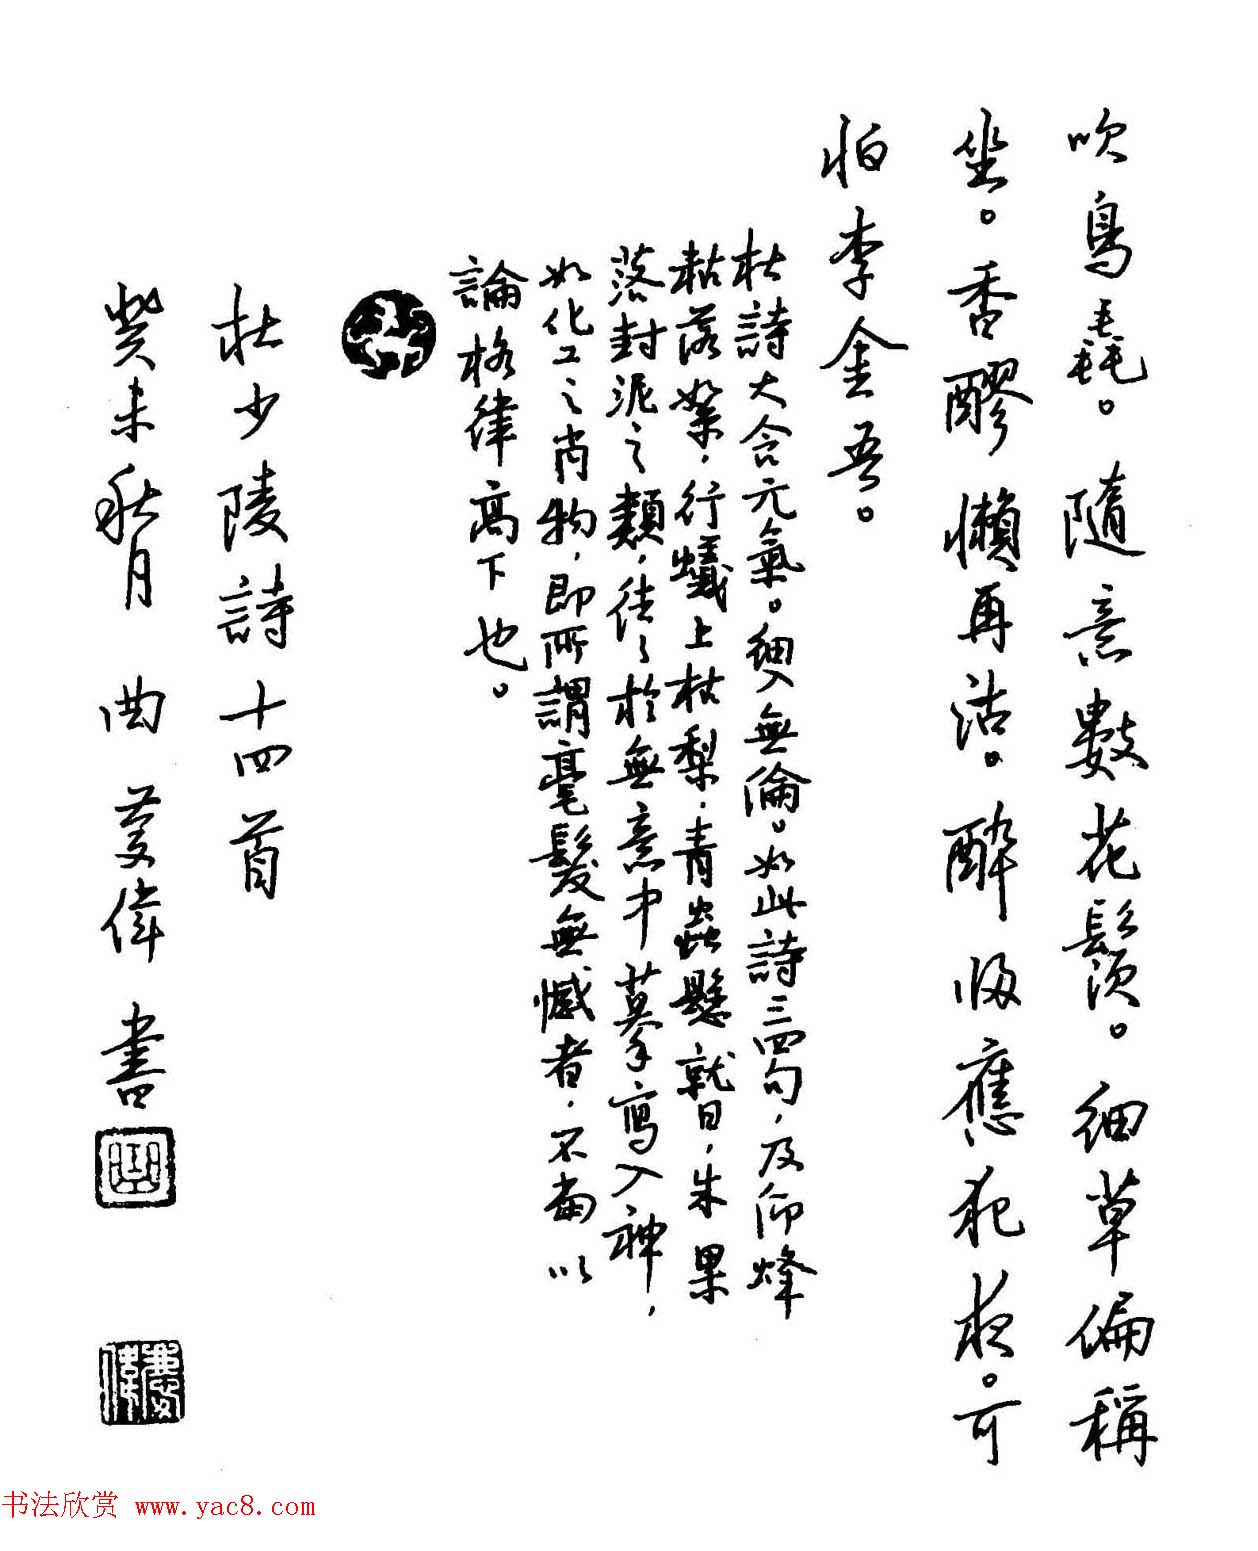 吹鳥毳。隨意數花鬚。細草偏稱
坐。香醪懶再沽。醉歸應犯夜。可
怕李金吾。
杜詩大含元氣。細入無倫。如此詩三四句,及仰蜂
粘落絮,行蟻上枯梨,青蟲懸就日,朱果
落封泥之類,往々於無意中摹寫入神,
如化工之肖物,即所謂毫髮無憾者,不當以
論格律高下也。
杜少陵詩十四首
癸未秋月 曲 偉 書
书法欣赏 www.yac8.com